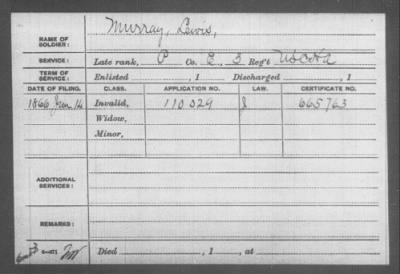 NAME OF SOLDIER: Murray, Lewis,
SERVICE: Late rank, P Co. E, 3 Reg't U S C H A
TERM OF SERVICE: Enlisted , 1 Discharged , 1
DATE OF FILING. CLASS. APPLICATION NO. LAW. CERTIFICATE NO.
1866 Jun 14 Invalid, 110029 J 665763
Widow,
Minor,
ADDITIONAL SERVICES:
REMARKS:
Died , 1 , at